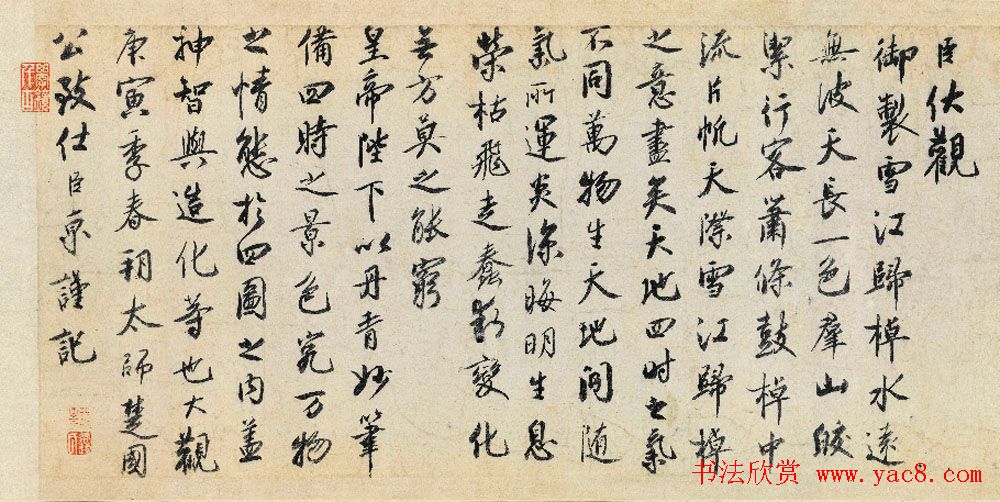 臣伏觀
御製雪江歸棹水遠
無波天長一色羣山皎
潔行客蕭條鼓棹中
流片帆天際雪江歸棹
之意盡矣天地四时之氣
不同萬物生天地間随
氣所運炎涼晦明生息
榮枯飛走蠢動變化
無方莫之能窮
皇帝陛下以丹青妙筆
備四時之景色究万物
之情態於四圖之内盖
神智與造化等也大觀
庚寅季春朔太師楚國
公致仕臣京謹記
书法欣赏 www.yac8.com